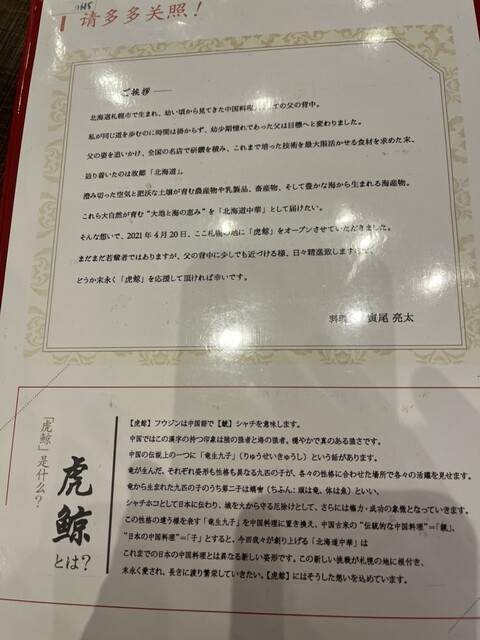 请多多关照！
ご挨拶
北海道札幌市で生まれ、幼い頃から見てきた中国料理ての父の背中。
私が同じ道を歩むのに時間は掛からず、幼少期憧れであった父は目標へと変わりました。
父の姿を追いかけ、全国の名店で研鑽を積み、これまで培った技術を最大限活かせる食材を求めた末、
辿り着いたのは故郷「北海道」。
澄み切った空気と肥沃な土壌が育む農産物や乳製品、畜産物、そして豊かな海から生まれる海産物。
これら大自然が育む“大地と海の恵み”を「北海道中華」として届けたい。
そんな想いで、2021年4月20日、ここ札幌の地に「虎鯨」をオープンさせていただきました。
まだまだ若輩者ではありますが、父の背中に少しでも近づける様、日々精進致しますので、
どうか末永く「虎鯨」を応援して頂ければ幸いです。
料理 寅尾 亮太
「虎鯨」是什么？
虎鯨
とは？
【虎鯨】フウジンは中国語で【鯱】シャチを意味します。
中国ではこの漢字の持つ印象は陸の強者と海の強者。穏やかで真のある強さです。
中国の伝説上の一つに「竜生九子」（りゅうせいきゅうし）という話があります。
竜が生んだ、それぞれ姿形も性格も異なる九匹の子が、各々の性格に合わせた場所で各々の活躍を見せます。
竜から生まれた九匹の子のうち第二子は螭吻（ちふん：頭は竜、体は魚）といい、
シャチホコとして日本に伝わり、城を火から守る厄除けとして、さらには権力・成功の象徴となっていきます。
この性格の違う様を表す「竜生九子」を中国料理に置き換え、中国古来の“伝統的な中国料理”=「親」、
“日本の中国料理”=「子」とすると、今回我々が創り上げる「北海道中華」は
これまでの日本の中国料理とは異なる新しい姿形です。この新しい挑戦が札幌の地に根付き、
末永く愛され、長きに渡り繁栄していきたい。【虎鯨】にはそうした想いを込めています。